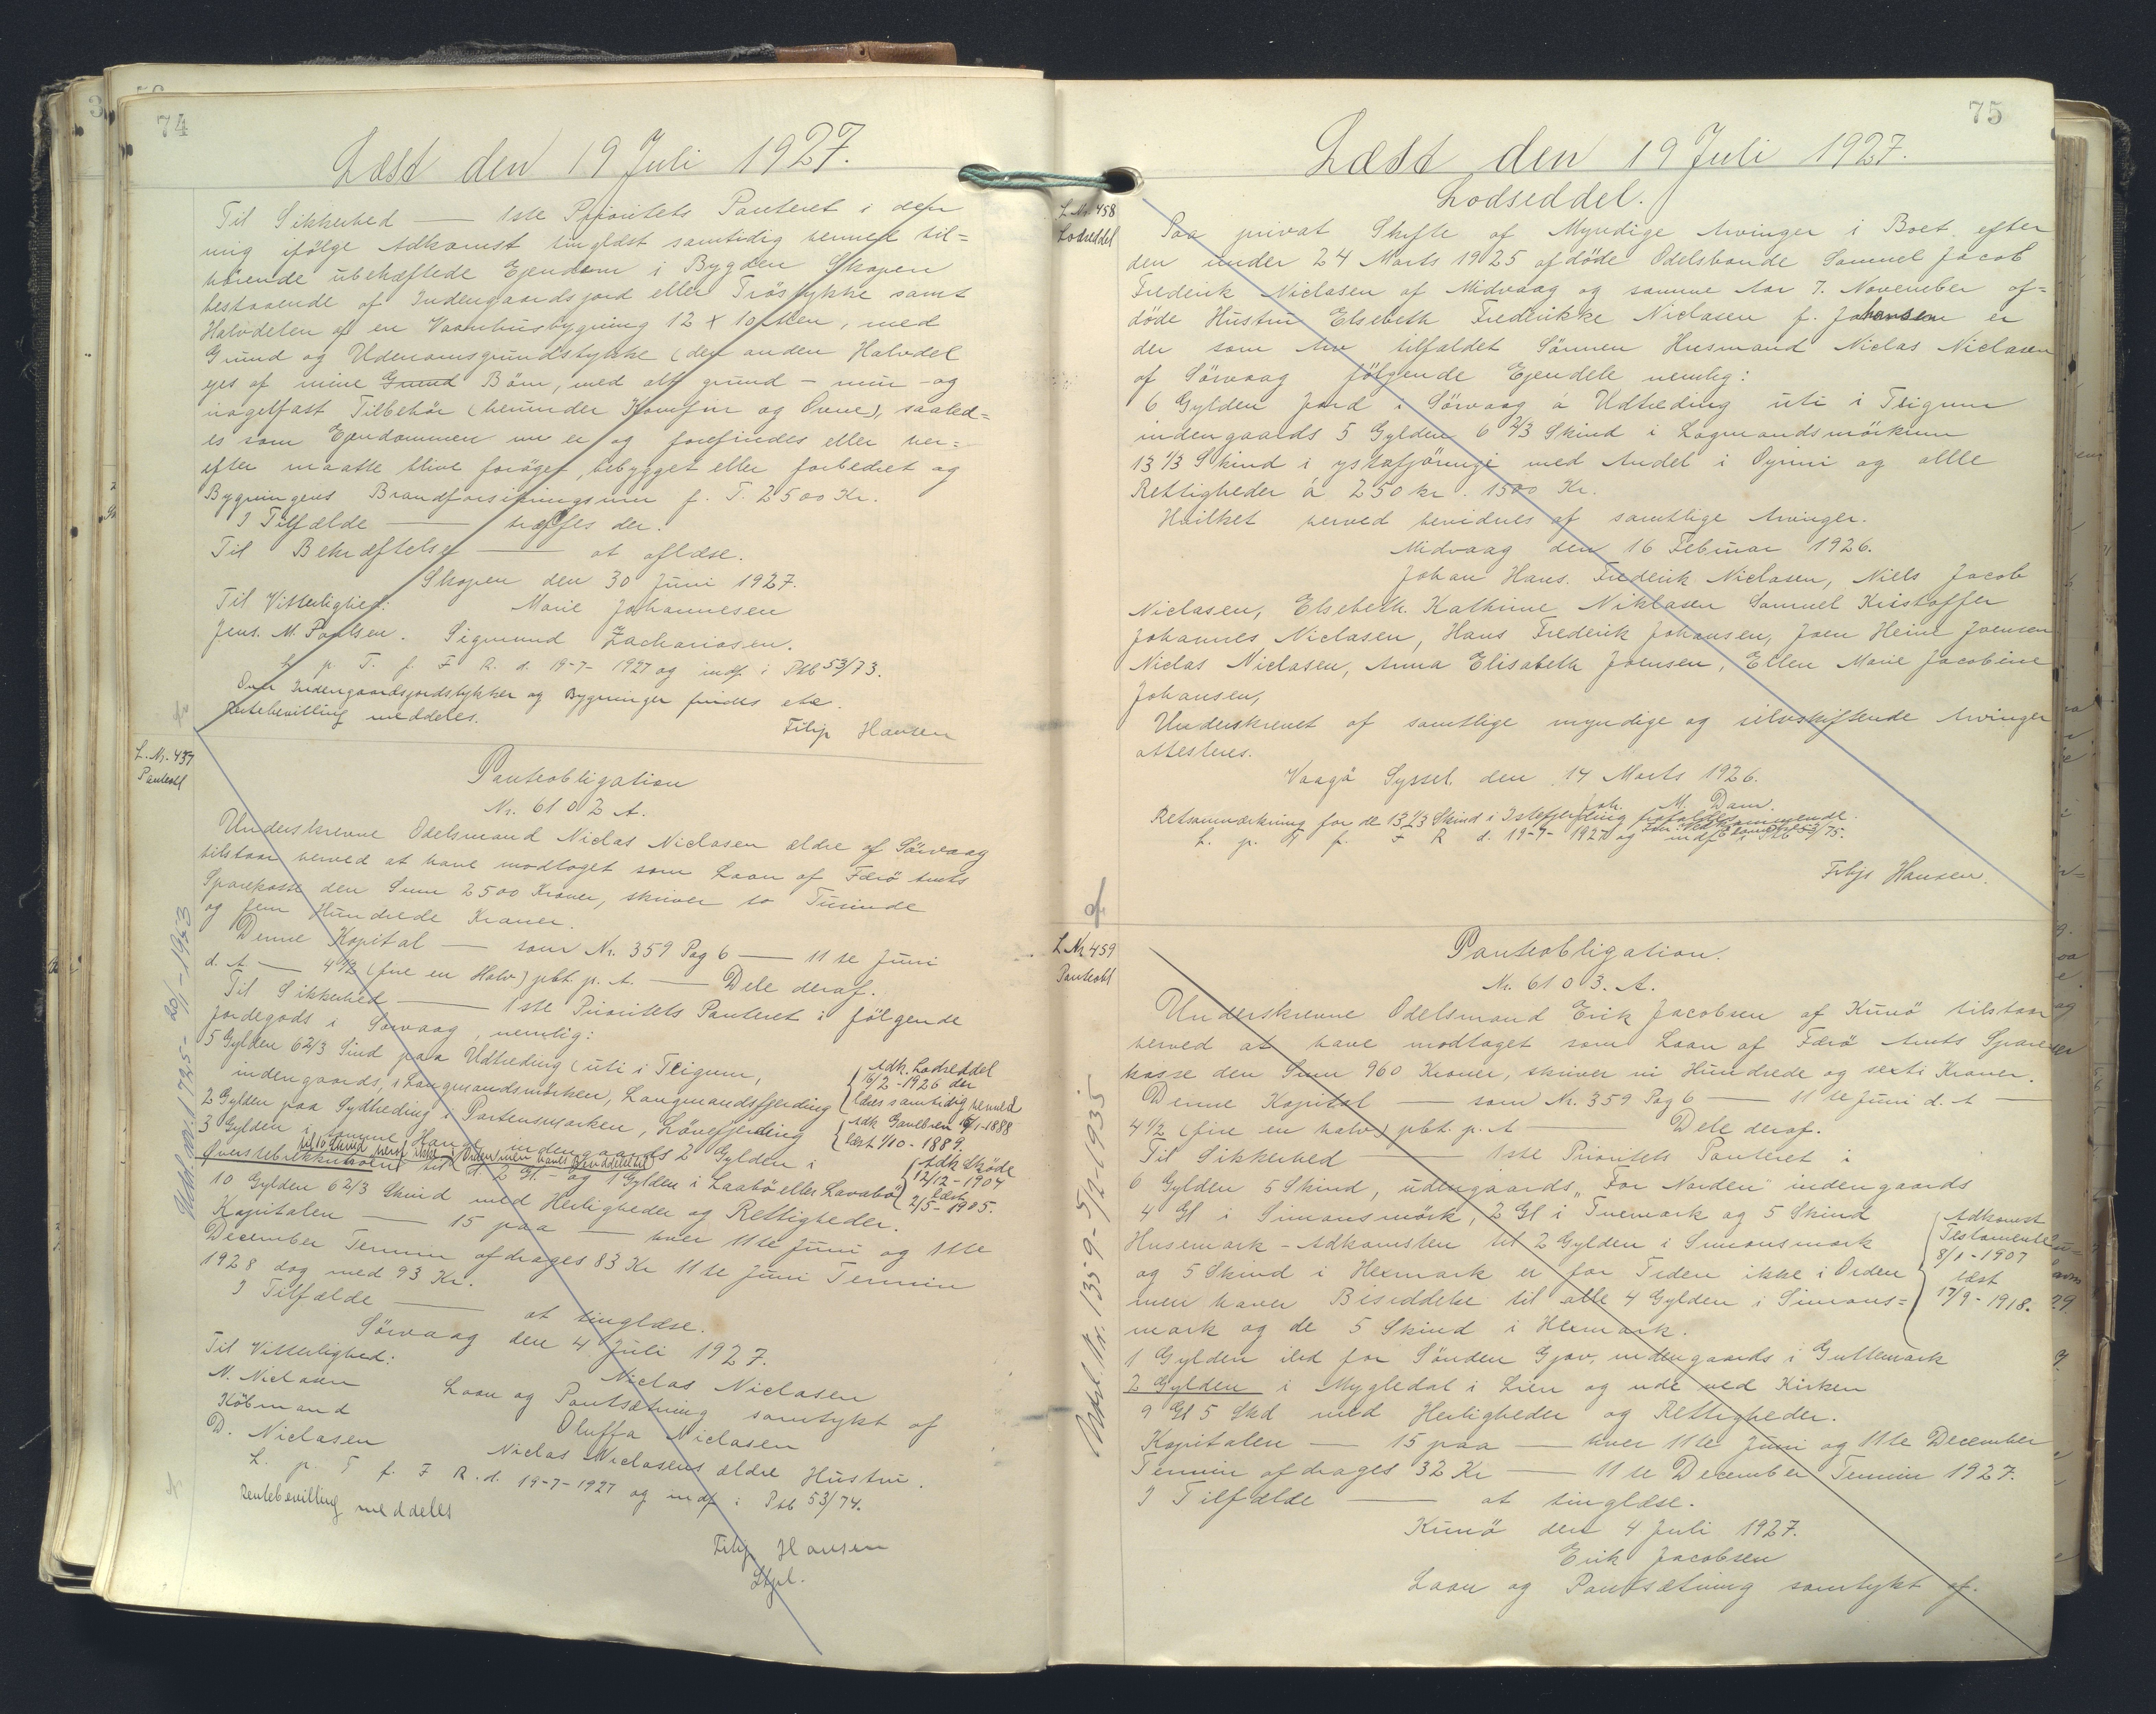 74
Læst den 19 Juli 1927.
Til Sikkerhed — 1ste Prioritets Panteret i den
mig ifølge Adkomst tinglæst samtidig hermed til=
hørende ubehæftede Ejendom i Bygden Skopen
bestaaende af Indengaardsjord eller Tröstykke samt
Halvdelen af en Vaanhusbygning 12 x 10 Alen, med
Grund og Udenomsgrundstykke (den anden Halvdel
ejes af mine Grund Börn, med alt grund - mur - og
nagelfast Tilbehör (herunder Komfur og Ovne), saaled=
es som Ejendommen nu er og forefindes eller her=
efter maatte blive foröget, bebygget eller forbedret og
Bygningens Brandforsikringssum p. T. 2500 Kr.
I Tilfælde — træffes der.
Til Bekræftelse — at aflæse.
Skopen den 30 Juni 1927.
Til Vitterlighed: Marie Johannesen
Jens. M. Poulsen. Sigmund Zachariasen.
L. p. T. f. F R. d. 19-7-1927 og indf. i Pkb 53/73.
Over Indengaardsjordstykker og Bygninger findes etc.
Rentebevilling meddeles.
Filip Hansen
L. Nr. 457
Panteobl
Panteobligation
Nr. 6102 A.
Underskrevne Odelsmand Niclas Niclasen ældre af Sörvaag
tilstaar herved at have modtaget som Laan af Færö Amts
Sparekasse den Sum 2500 Kroner, skriver to Tusinde
og fem Hundrede Kroner.
Denne Kapital — som Nr. 359 Pag 6 — 11te Juni
d. A — 4 1/2 (fire en Halv) pbt. p. A. — Dele deraf.
Til Sikkerhed — 1ste Prioritets Panteret i følgende
Jordegods i Sörvaag, nemlig:
5 Gylden 6 2/3 Sind paa Udtreding (uti i Teigum,
indengaards, i Langmandsmörken, Langmandsfjerding
{Adk. Lodseddel
16/2-1926 der
læses samtidig hermed
2 Gylden paa Sydtreding i Partensmarken, Lönefjerding
{Adk Gavebrev 16/1-1888
læst 1/10-1889.
3 Gylden i samme Hauge indengaards 2 Gylden i
til 10 Skind heraf ikke i Orden men haves Besiddelse til
Överstebrekkuhoem til d. 2 Gl. - og 1 Gylden i Laabö eller Lavabö
{Adk Sköde
12/12-1904
læst
2/5-1905.
10 Gylden 6 2/3 Skind med Herligheder og Rettigheder.
Kapitalen — 15 paa — hver 11te Juni og 11te
December Termin afdrages 83 Kr 11te Juni Termin
1928 dog med 93 Kr.
I Tilfælde — at tinglæse.
Sörvaag den 4 Juli 1927.
Til Vitterlighed: Niclas Niclasen
N. Niclasen Laan og Pantsætning samtykt af
Köbmand Oluffa Niclasen
D. Niclasen Niclas Niclasens ældre Hustru.
L. p. T f. F R. d. 19-7-1927 og indf i Pkb 53/74.
Rentebevilling meddeles
Filip Hansen
Udsl. Nr. 1725 - 20/1-1943
75
Læst den 19 Juli 1927.
L. Nr. 458
Lodseddel
Lodseddel.
Paa privat Skifte af Myndige Arvinger i Boet efter
den under 24 Marts 1925 afdöde Odelsbonde Samuel Jacob
Frederik Niclasen af Midvaag og samme Aar 7. November af=
döde Hustru Elsebeth Frederikke Niclasen f. Johansen er
der som Arv tilfaldet Sönnen Husmand Niclas Niclasen
af Sörvaag fölgende Ejendele nemlig:
6 Gylden Jord i Sörvaag á Udtreding uti i Teigum
indengaards 5 Gylden 6 2/3 Skind i Lagmandsmörkum
13 1/3 Skind i ystafjöringi med Andel i Oyrini og allle
Rettigheder á 250 kr. 1500 Kr.
Hvilket herved bevidnes af samtlige Arvinger.
Midvaag den 16 Februar 1926.
Johan Hans. Frederik Niclasen, Niels Jacob
Niclasen, Elsebeth Kathrine Niklasen Samuel Kristoffer
Johannes Niclasen, Hans Frederik Johansen, Joen Heine Joensen
Niclas Niclasen, Anna Elisabeth Joensen, Ellen Marie Jacobine
Johansen,
Underskrevet af samtlige myndige og selvskiftende Arvinger
attesteres.
Vaagö Syssel, den 14 Marts 1926.
Joh. M. Dam.
Retsanmærkning for de 13 1/3 Skind i Istefjerding
L. p. T f. F R d. 19-7-1927 og indf i Pkb 53/75.
Filip Hansen.
L Nr 459
Panteobl
Panteobligation.
Nr. 6103. A.
Underskrevne Odelsmand Erik Jacobsen af Kunö tilstaar
herved at have modtaget som Laan af Færö Amts Spare
kasse den Sum 960 Kroner, skriver ni Hundrede og seksti Kroner.
Denne Kapital — som Nr. 359 Pag 6 — 11te Juni d. A —
4 1/2 (fire en halv) pbt. p. A — Dele deraf.
Til Sikkerhed — 1ste Prioritets Panteret i
6 Gylden 5 Skind, udengaards „For Norden" indengaards
4 Gl i Simonsmörk, 2 Gl i Tuemark og 5 Skind
Husemark - Adkomsten til 2 Gylden i Simonsmark
og 5 Skind i Hexmark er for Tiden ikke i Orden
men haver Besiddelse til alle 4 Gylden i Simons=
mark og de 5 Skind i Hexmark.
{Adkomst
Testamente
8/1-1907
læst
17/9-1918.
1 Gylden ild for Sönden Gjov, indengaards i Guttemark
2 Gylden i Mygledal i Lien og ude ved Kirken
9 Gl 5 Skd med Herligheder og Rettigheder.
Kapitalen — 15 paa — hver 11te Juni og 11te December
Termin afdrages 32 Kr — 11te December Termin 1927.
I Tilfælde — at tinglæse.
Kunö den 4 Juli 1927.
Erik Jacobsen
Laan og Pantsætning samtykt af.
Udsl. Nr. 1359 - 5/2-1935